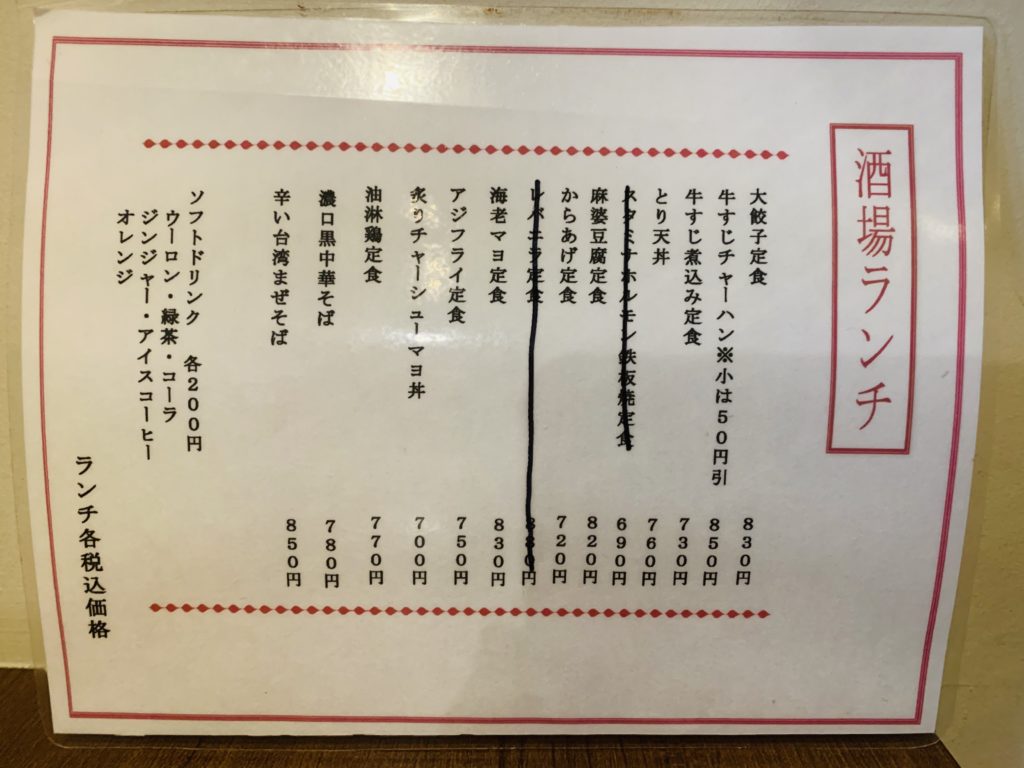 酒場ランチ
大餃子定食 830円
牛すじチャーハン※小は50円引 850円
牛すじ煮込み定食 730円
とり天丼 760円
スタミナホルモン鉄板焼定食 690円
麻婆豆腐定食 820円
からあげ定食 720円
レバニラ定食 880円
海老マヨ定食 830円
アジフライ定食 750円
炙りチャーシューマヨ丼 700円
油淋鶏定食 770円
濃口黒中華そば 780円
辛い台湾まぜそば 850円
ソフトドリンク 各200円
ウーロン・緑茶・コーラ
ジンジャー・アイスコーヒー
オレンジ
ランチ各税込価格